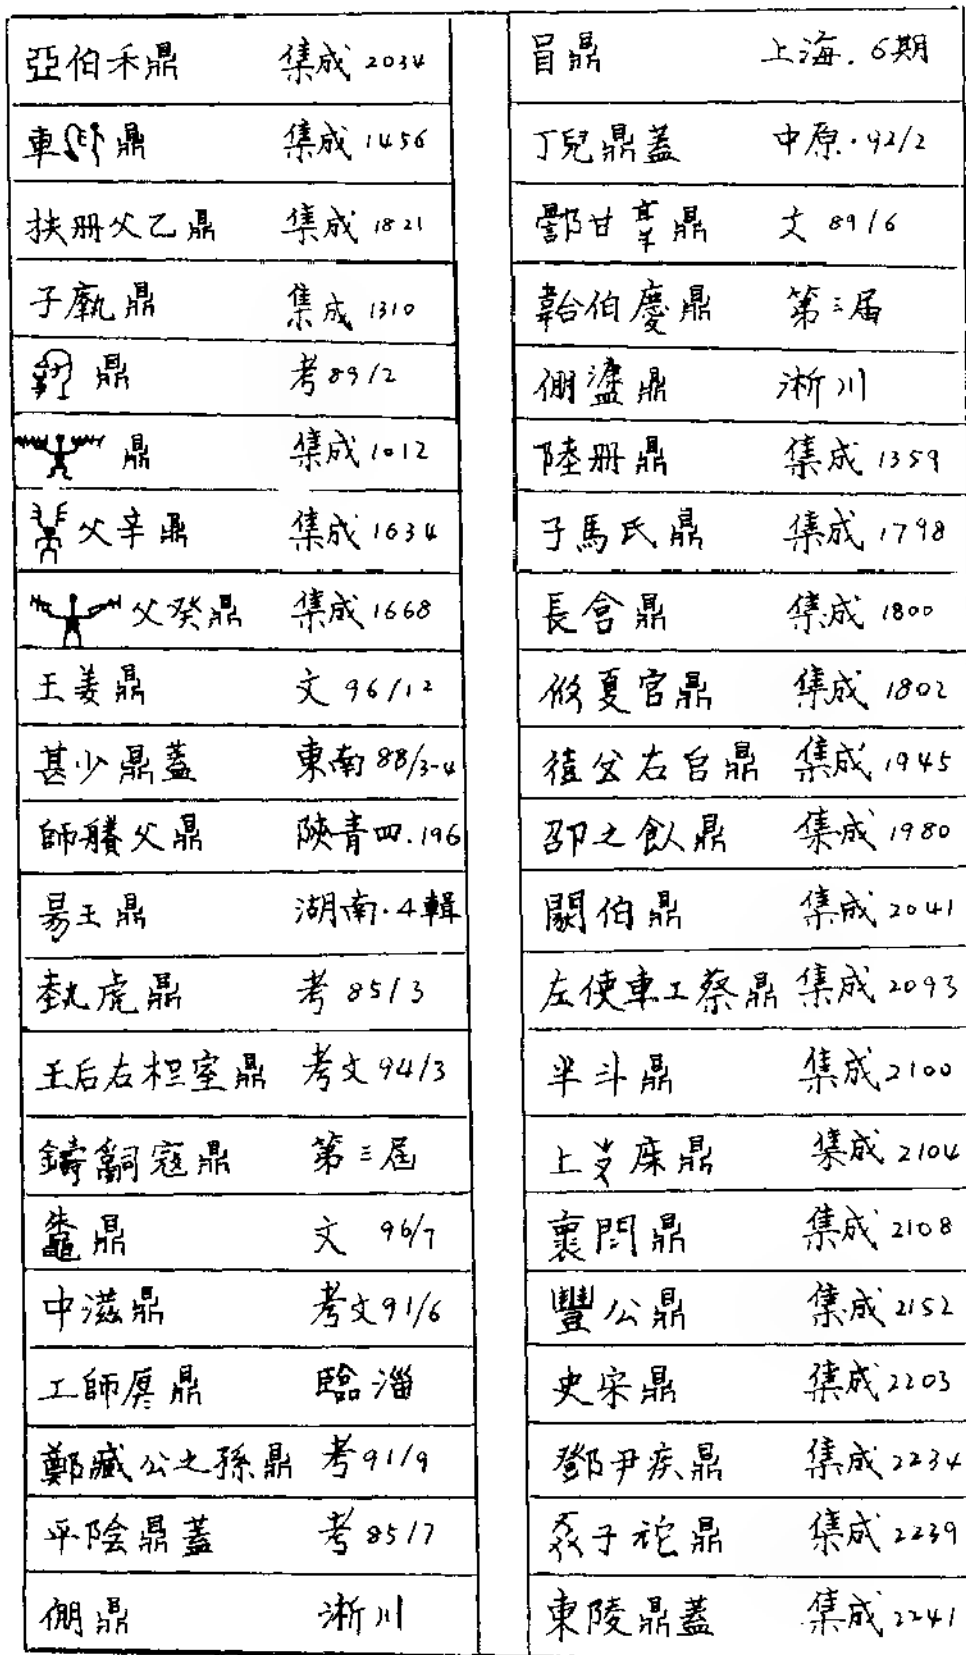 亞伯禾鼎 集成 2034
車 鼎 集成 1456
扶册父乙鼎 集成 1821
子𢉩鼎 集成 1310
鼎 考 89/2
鼎 集成 1012
父辛鼎 集成 1634
父癸鼎 集成 1668
王姜鼎 文 96/12
甚少鼎蓋 東南 88/3-4
師 父鼎 陝青四.196
昜王鼎 湖南.4輯
虎鼎 考 85/3
王后右 室鼎 考文 94/3
鑄 寇鼎 第三屆
鼄鼎 文 96/7
中滋鼎 考文 91/6
工師厚鼎 臨淄
鄭臧公之孫鼎 考 91/9
平陰鼎蓋 考 85/7
倗鼎 淅川
冒鼎 上海.6期
丁兒鼎蓋 中原.92/2
甘 鼎 文 89/6
伯慶鼎 第三屆
倗 鼎 淅川
陸册鼎 集成 1359
子馬氏鼎 集成 1798
長 鼎 集成 1800
脩夏官鼎 集成 1802
右官鼎 集成 1945
邵之飤鼎 集成 1980
伯鼎 集成 2041
左使車工蔡鼎 集成 2093
半斗鼎 集成 2100
上 床鼎 集成 2104
鼎 集成 2108
豐公鼎 集成 2152
史宋鼎 集成 2203
鄧尹疾鼎 集成 2234
子 鼎 集成 2239
東陵鼎蓋 集成 2241